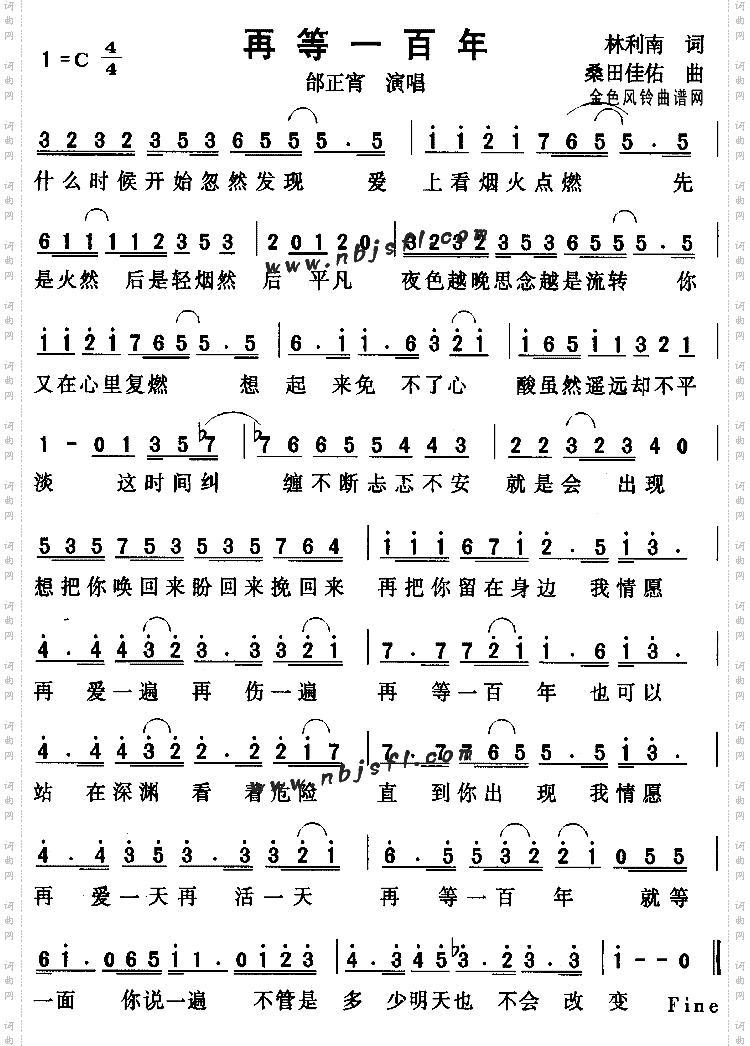 再等一百年
1=C 4/4
林利南 词
桑田佳佑 曲
邰正宵 演唱
金色风铃曲谱网
3232 353 6 5 5 5 . 5 | i i 2 i 7 6 5 5 . 5 |
什么时候开始忽然发现 爱 上看烟火点燃 先
6 1 1 1 1 1 2 3 5 3 | 2 0 1 2 0 | 3 2 3 2 3 5 3 6 5 5 5 . 5 |
是火然 后是轻烟然 后 平凡 夜色越晚思念越是流转 你
www.nbjsfl.com
i i 2 i 7 6 5 5 . 5 | 6 . i i . 6 3 2 i | i 6 5 i i 3 2 1 |
又在心里复燃 想 起 来免 不了心 酸虽然遥远却不平
1 - 0 1 3 5 ♭7 | ♭7 6 6 5 5 4 4 3 | 2 2 3 2 3 4 0 |
淡 这时间纠 缠不断忐忑不安 就是会 出现
5 3 5 7 5 3 5 3 5 7 6 4 | i i i 6 7 i 2 . 5 i 3 . |
想把你唤回来盼回来挽回来 再把你留在身边 我情愿
4 . 4 4 3 2 3 . 3 3 2 i | 7 . 7 7 2 i i . 6 i 3 . |
再 爱一遍 再 伤一遍 再 等一百 年 也可以
4 . 4 4 3 2 2 . 2 2 i 7 | 7 . 7 7 6 5 5 . 5 i 3 . |
站 在深渊 看 着危险 直 到你出 现 我情愿
www.nbjsfl.com
4 . 4 3 5 3 . 3 3 2 i | 6 . 5 5 3 2 2 i 0 5 5 |
再 爱一天再 活一天 再 等一百 年 就等
6 i . 0 6 5 i i . 0 1 2 3 | 4 . 3 4 5 ♭3 . 2 3 . 2 | i - - 0 ‖
一面 你说一遍 不管是 多 少明天也 不会 改 变 Fine
词曲网